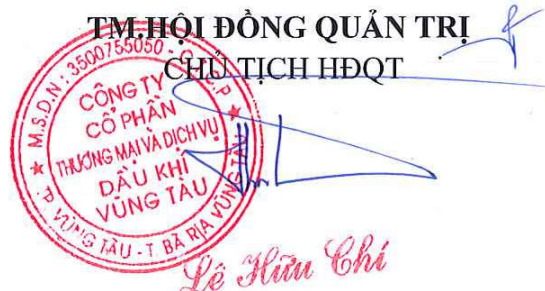 TM.HỘI ĐỒNG QUẢN TRỊ
CHỦ TỊCH HĐQT
M.S.D.N: 3500755050 - C.T.C.P
CÔNG TY
CỔ PHẦN
THƯƠNG MẠI VÀ DỊCH VỤ
DẦU KHÍ
VŨNG TÀU
TP. VŨNG TÀU - T. BÀ RỊA VŨNG TÀU
Lê Hữu Chí